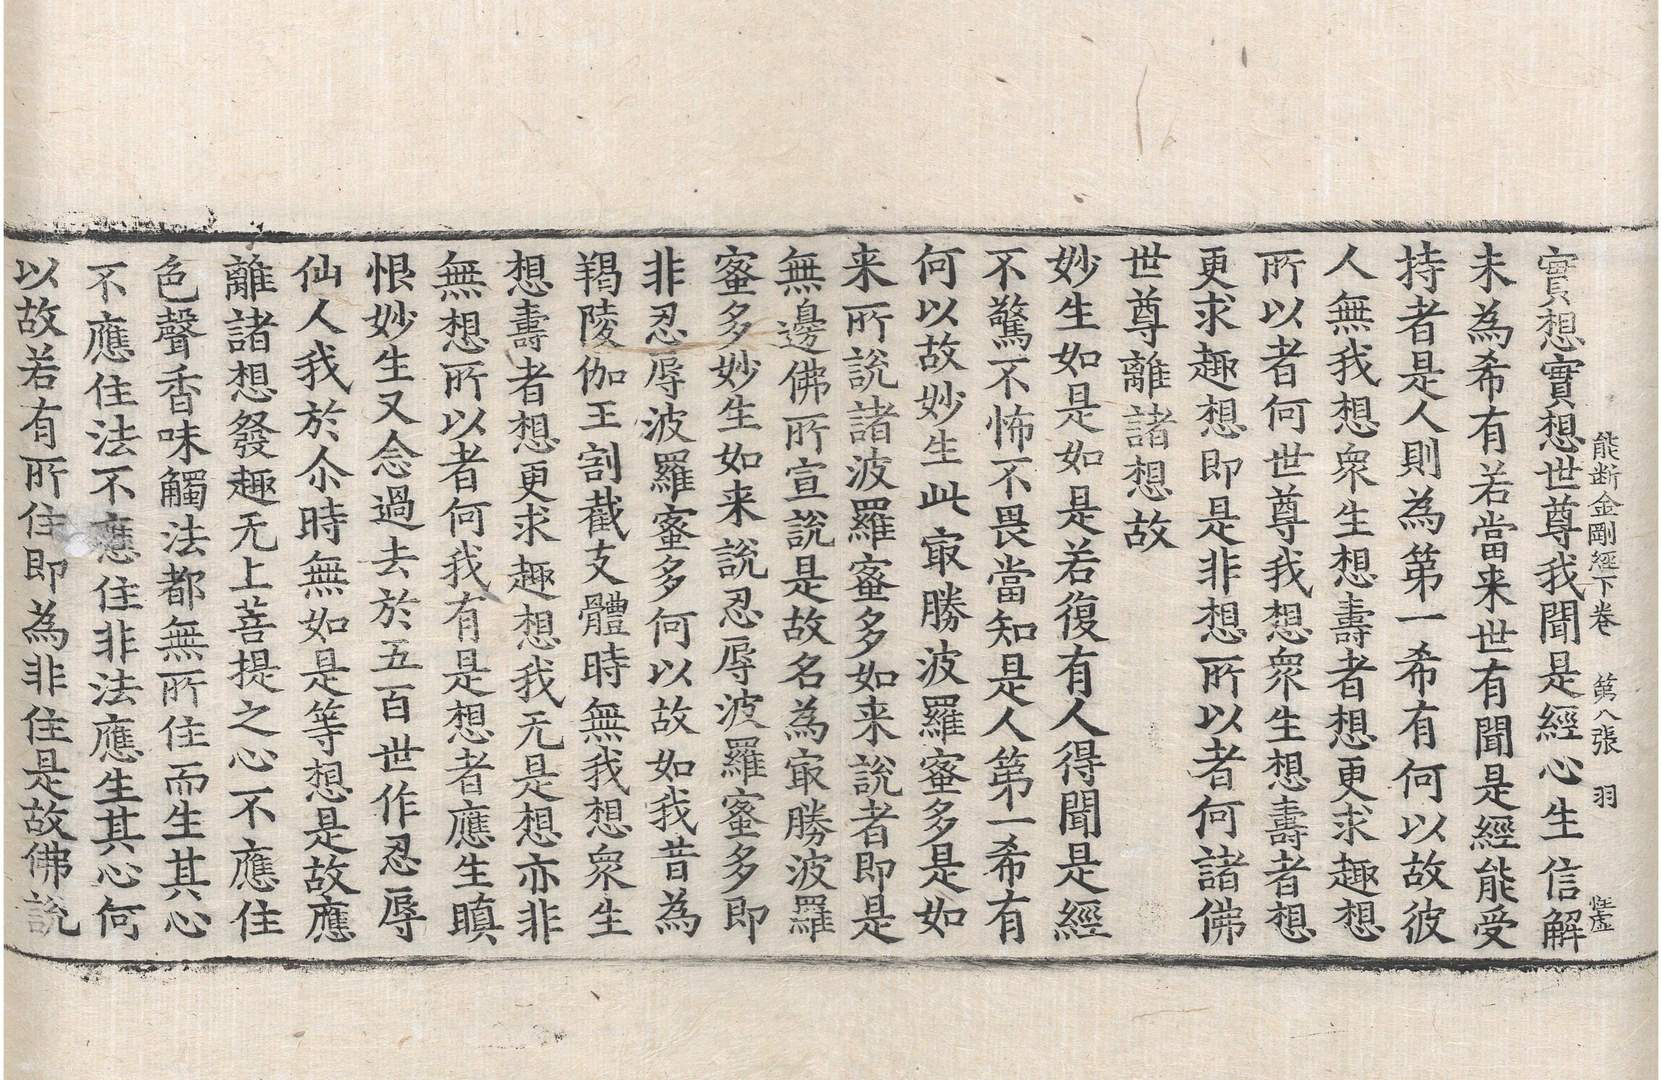 能断金剛經下卷 第八張 羽
實想實想世尊我聞是經心生信解
未為希有若當来世有聞是經能受
持者是人則為第一希有何以故彼
人無我想衆生想壽者想更求趣想
所以者何世尊我想衆生想壽者想
更求趣想即是非想所以者何諸佛
世尊離諸想故
妙生如是如是若復有人得聞是經
不驚不怖不畏當知是人第一希有
何以故妙生此㝡勝波羅蜜多是如
来所說諸波羅蜜多如来說者即是
無邊佛所宣說是故名為㝡勝波羅
蜜多妙生如来說忍辱波羅蜜多即
非忍辱波羅蜜多何以故如我昔為
羯陵伽王割截支體時無我想衆生
想壽者想更求趣想我无是想亦非
無想所以者何我有是想者應生瞋
恨妙生又念過去於五百世作忍辱
仙人我於尒時無如是等想是故應
離諸想發趣无上菩提之心不應住
色聲香味觸法都無所住而生其心
不應住法不應住非法應生其心何
以故若有所住即為非住是故佛說